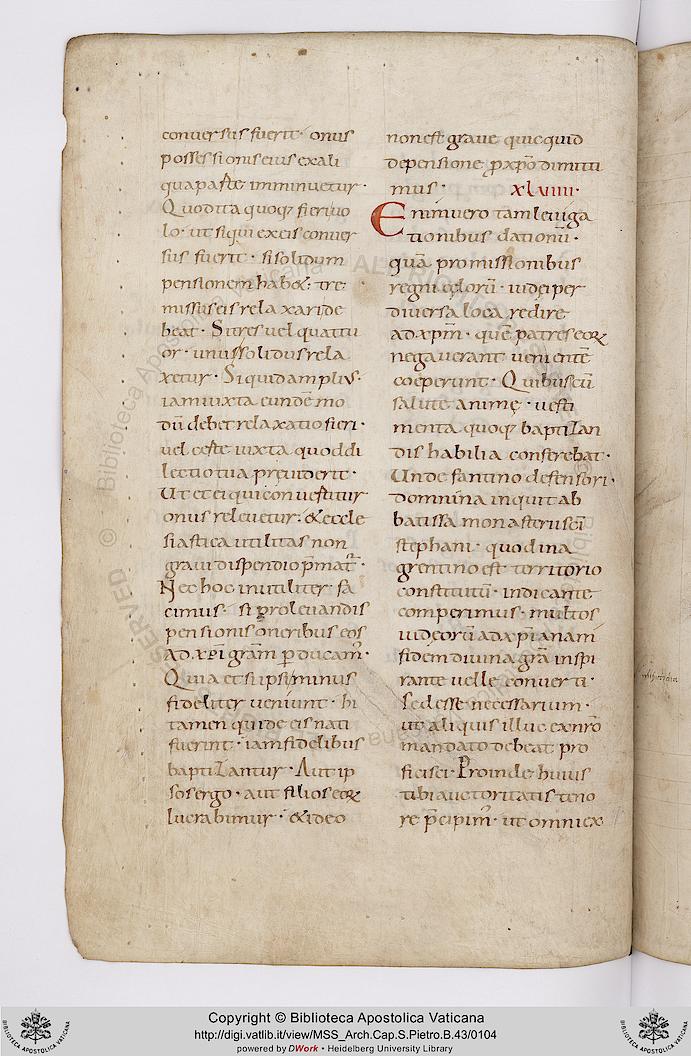 conuersus fuerit · onus
possessionis eius ex ali
qua parte imminuetur ·
Quod ita quoq; fieri uo
lo · ut si qui ex eis conuer
sus fuerit · si solidum
pensionem habet · tre
missis eis relaxari de
beat · Si tres uel quattu
or · unus solidus rela
xetur · Si quid amplius ·
iam iuxta eundē mo
dū debet relaxatio fieri ·
uel certe iuxta quod di
lectio tua preuiderit ·
Ut et ei qui conuertitur
onus releuetur · & eccle
siastica utilitas non
graui dispendio p̄mat ·
Nec hoc inutiliter fa
cimus · si pro leuandis
pensionis oneribus eos
ad xp̄i grām ꝑducam ·
Quia et si ipsi minus
fideliter ueniunt · hi
tamen qui de eis nati
fuerint · iam fidelibus
baptizantur · Aut ip
sos ergo · aut filios eoꝝ
lucrabimur · & ideo
non est graue quicquid
de pensione ꝓ xp̄o dimitti
mus · xLuıııı ·
Enimuero tam leuiga
tionibus dationū ·
quā promissionibus
regni cęlorū · iudei per
diuersa loca redire
ad xp̄m · quē patres eoꝝ
negauerant uenientē
coeperunt · Quibus cū
salute animę · uesti
menta quoq; baptizan
dis habilia conferebat ·
Unde fantino defensori ·
domnina inquit ab
batissa monasterii sc̄i
stephani · quod in a
grentino est territorio
constitutū · indicante
comperimus · multos
iudęorū ad xp̄ianam
fidem diuina grā inspi
rante uelle conuerti ·
sed esse necessarium ·
ut aliquis illuc ex nr̄o
mandato debeat pro
ficisci · Proinde huius
tibi auctoritatis teno
re p̄cipim · ut omni ex
Copyright © Biblioteca Apostolica Vaticana
http://digi.vatlib.it/view/MSS_Arch.Cap.S.Pietro.B.43/0104
powered by DWork • Heidelberg University Library